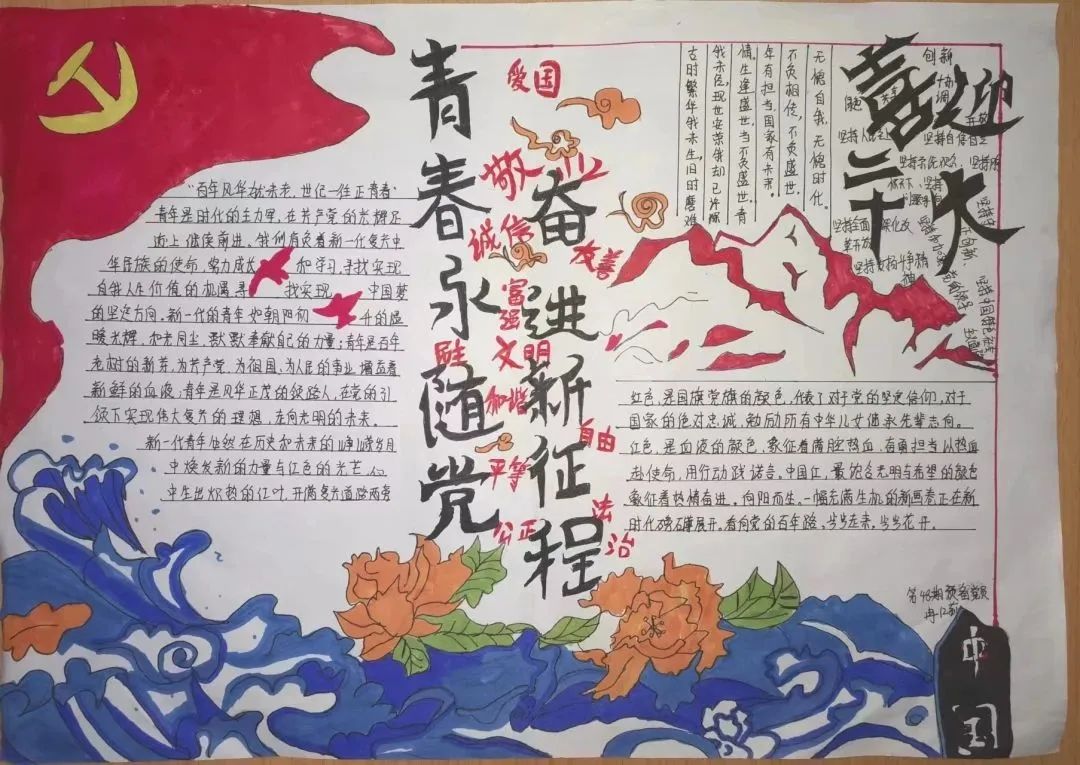 喜迎
二十大
青春永随党
奋进新征程
爱国
敬业
诚信
友善
富强
文明
和谐
自由
平等
公正
法治
"百年风华越未老,世纪一任正青春"
青年是时代的主力军,在共产党的光辉旗
帜上继续前进,我们有负着新一代复兴中
华民族的使命,努力成长和学习,寻找实现
自我人生价值的机遇,寻找实现中国梦
的坚定方向。新一代的青年如朝阳初升的温
暖光辉,和光同尘,默默奉献自己的力量;青年是百年
老树的新芽,为共产党,为祖国,为人民的事业增益着
新鲜的血液;青年是风华正茂的领路人,在党的引
领下实现伟大复兴的理想,走向光明的未来。
新一代青年必然在历史和未来的峥嵘岁月
中焕发新的力量与红色的光芒,心
中生出炽热的红叶,开满复兴道路两旁
无愧自我,无愧时代。
不负相传,不负盛世,
年有担当,国家有未来。
情。生逢盛世,当不负盛世。青
我未曾,现世安荣我却已许
古时繁华我未生,旧时磨难
创新
协调
开放
坚持自信自立
坚持全面深化改
革开放
坚持发扬斗争精
神
红色,是国旗党旗的颜色,代表了对于党的坚定信仰,对于
国家的绝对忠诚,勉励所有中华儿女继承先辈志向。
红色,是血液的颜色,象征着满腔热血,奋勇担当以热血
赴使命,用行动践诺言。中国红,最饱含光明与希望的颜色
象征着热情奋进,向阳而生,一幅充满生机的新画卷正在新
时代磅礴展开。看向党的百年路,步步走来,步步花开。
第48期预备党员
中国